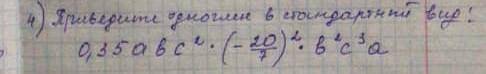 4) Приведите одночлен в стандартный вид!
0,35abc² · (-20/7)² · b²c³a